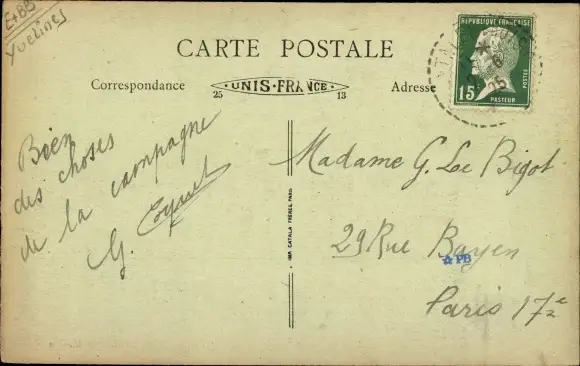 E+BB
Yvelines
CARTE POSTALE
Correspondance
UNIS-FRANCE
25 13
Adresse
RÉPUBLIQUE FRANÇAISE
POSTES
15c
PASTEUR
Bien
des choses
de la campagne
G. Coquet
IMP. CATALA FRÈRES, PARIS
Madame G. Le Bigot
29 Rue Bayen
PB
Paris 17e